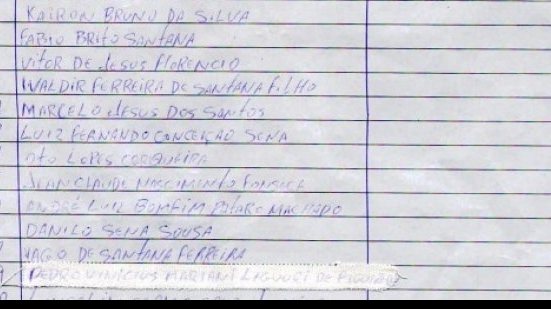 KAIRON BRUNO DA SILVA
FABIO BRITO SANTANA
VITOR DE JESUS FLORENCIO
WALDIR FERREIRA DE SANTANA FILHO
MARCELO JESUS DOS SANTOS
LUIZ FERNANDO CONCEIÇÃO SENA
LOPES CERQUEIRA
JEAN CLAUDE NASCIMENTO FONSECA
ANDRÉ LUIZ BOMFIM MACHADO
DANILO SENA SOUSA
IAGO DE SANTANA FERREIRA
PEDRO VINICIUS MARIANI DE